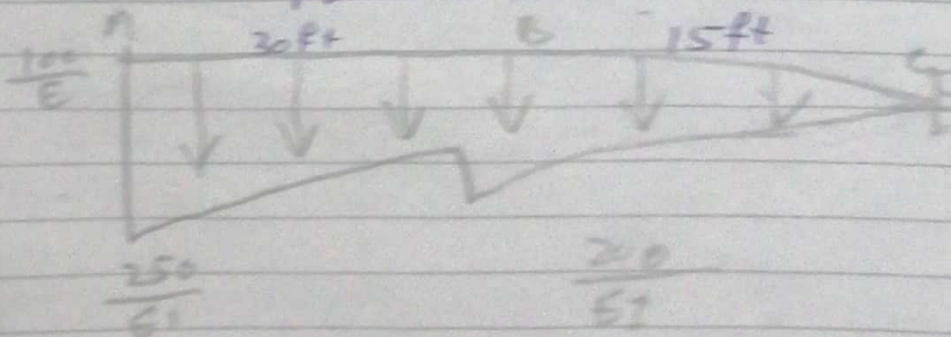 A
30ft
B
15ft
C
100
E
250
EI
200
EI